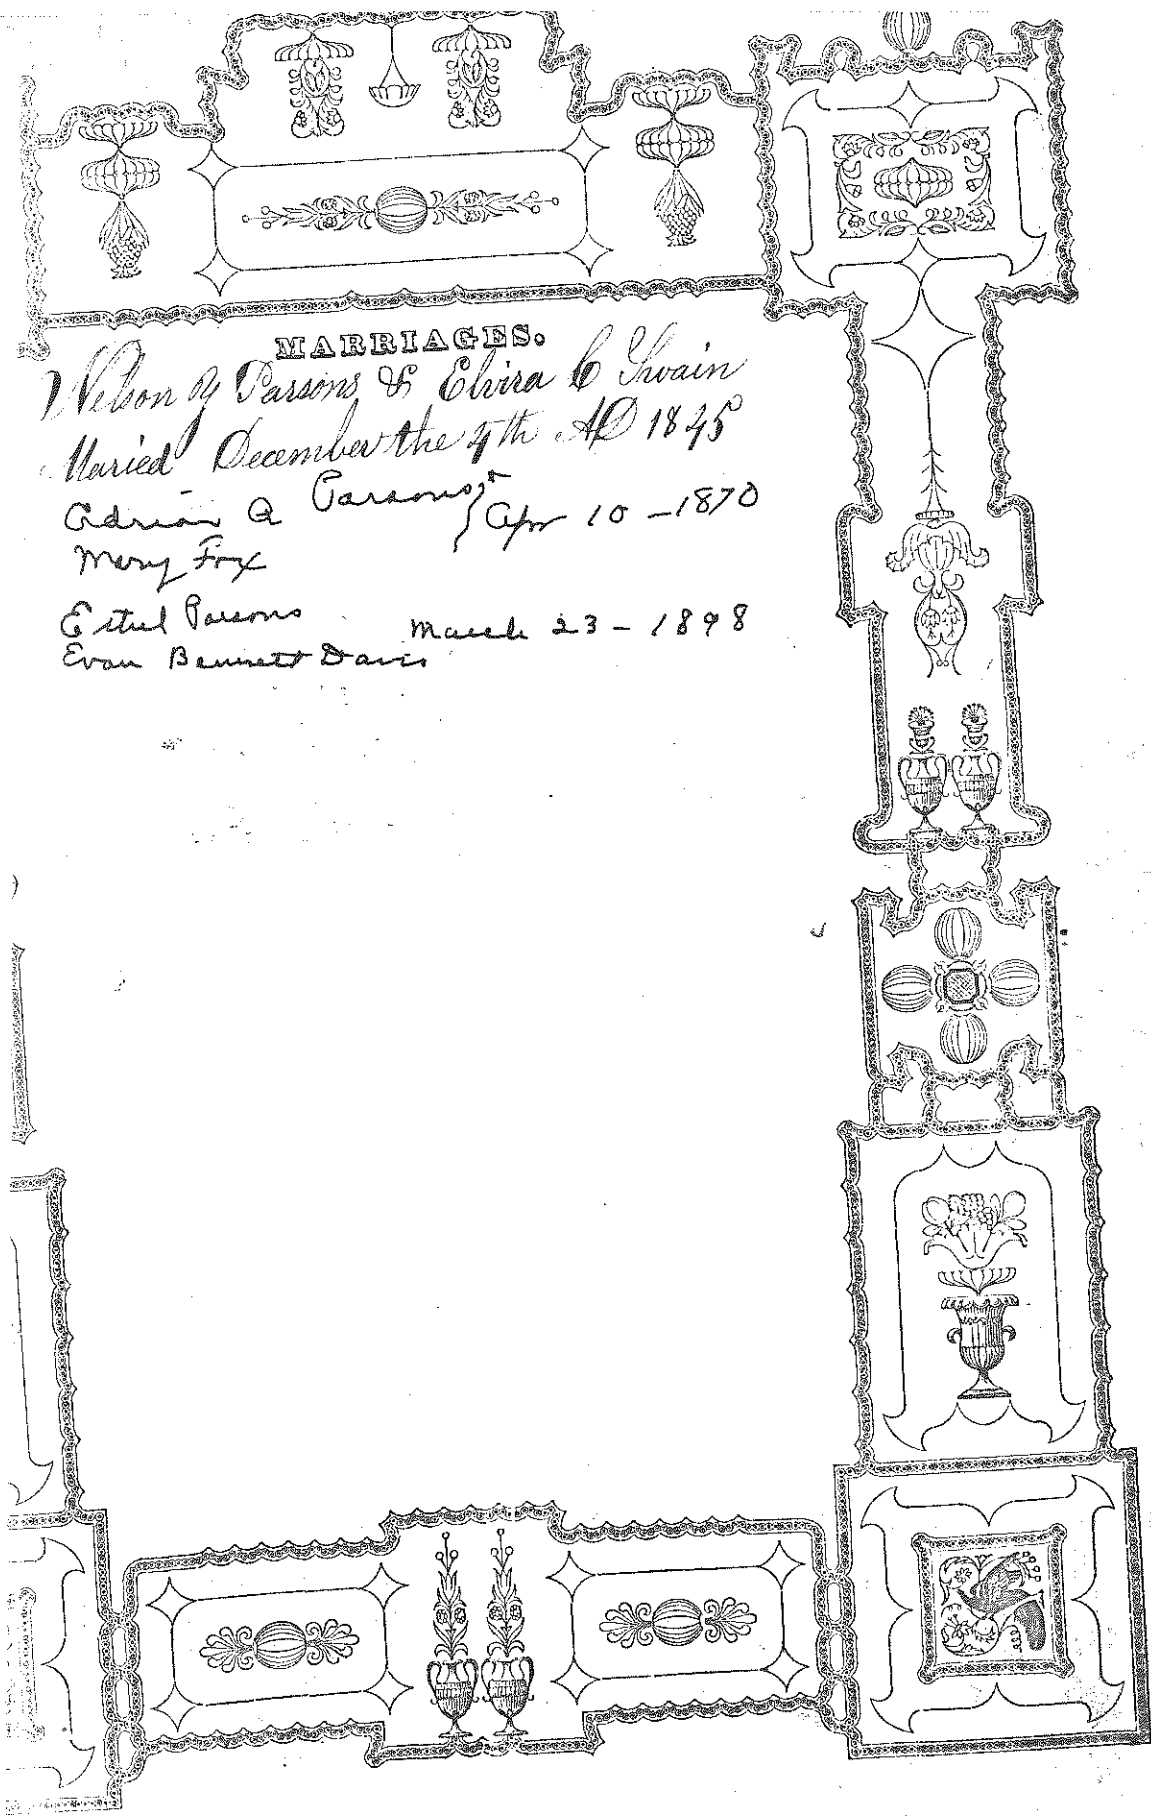 MARRIAGES.
Nelson Y Parsons & Elvira C Swain
Maried December the 4th AD 1845
Adrian A Parsons } Apr 10 – 1870
Mary Fox
Ethel Parsons March 23 – 1898
Evan Bennett Davis